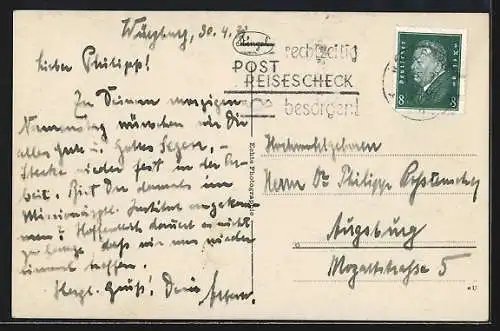 Würzburg, 30.4.
Lieber Philipp!
Zu Deinem morgigen
Namenstag wünschen wir Dir
alles Gute u. Gottes Segen, -
Stecke wieder fest in der Ar-
beit. Bist Du damals im
Missionsärztl. Institut angekom-
men? Hoffentlich dauert es nicht
zu lange, daß wir uns wieder
einmal treffen.
Herzl. Gruß! Dein
rechtzeitig
POST
REISESCHECK
besorgen!
DEUTSCHES REICH
8 8
Echte Photographie
Hochwohlgeboren
Herrn Dr. Philipp
Augsburg
Mozartstrasse 5